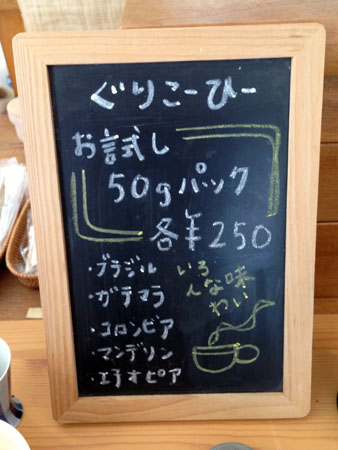 ぐりこーひー
お試し
50gパック
各¥250
・ブラジル
・ガテマラ
・コロンビア
・マンデリン
・エチオピア
いろ
んな味
わい